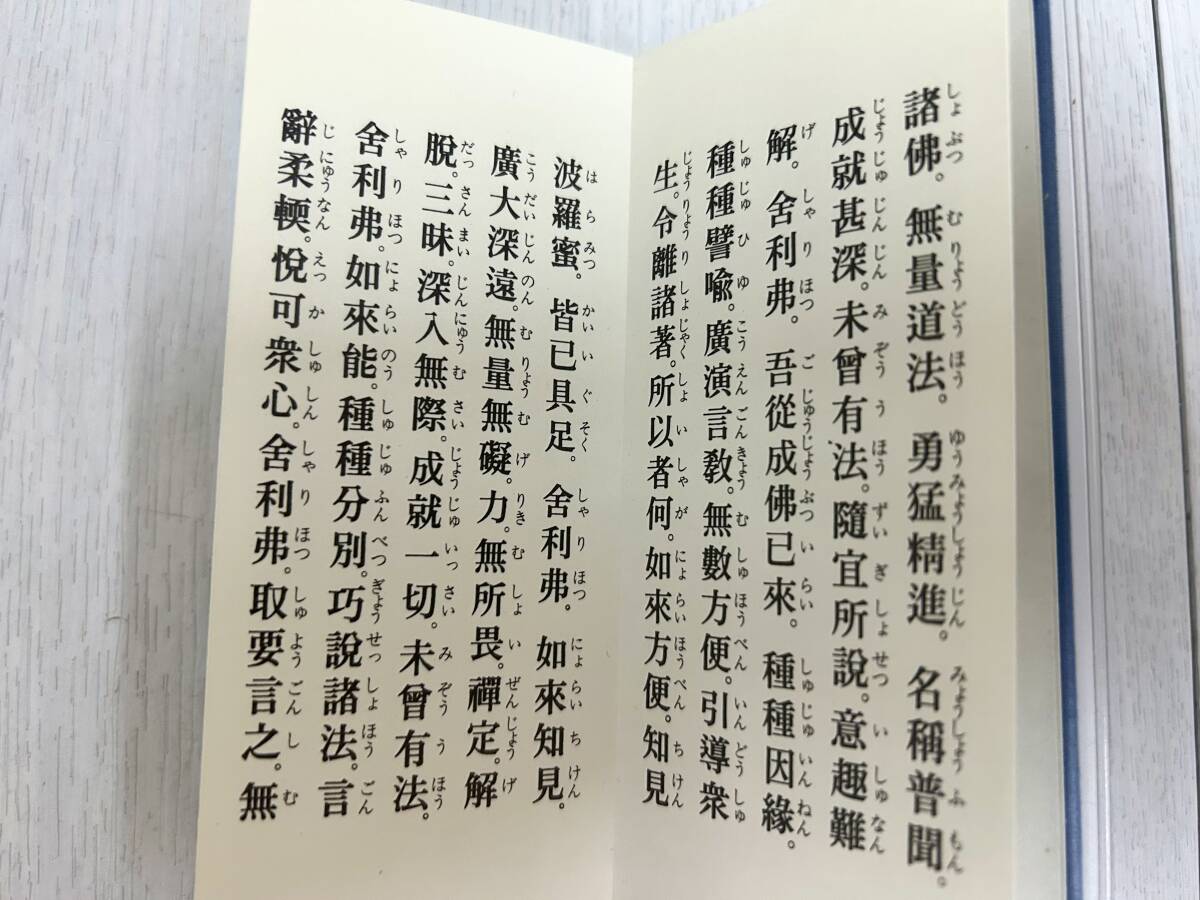 諸佛。無量道法。勇猛精進。名稱普聞。
成就甚深。未曾有法。隨宜所說。意趣難
解。舍利弗。吾從成佛已來。種種因緣。
種種譬喩。廣演言敎。無數方便。引導衆
生。令離諸著。所以者何。如來方便。知見
波羅蜜。皆已具足。舍利弗。如來知見。
廣大深遠。無量無礙。力。無所畏。禪定。解
脫。三昧。深入無際。成就一切。未曾有法。
舍利弗。如來能。種種分別。巧說諸法。言
辭柔輭。悅可衆心。舍利弗。取要言之。無